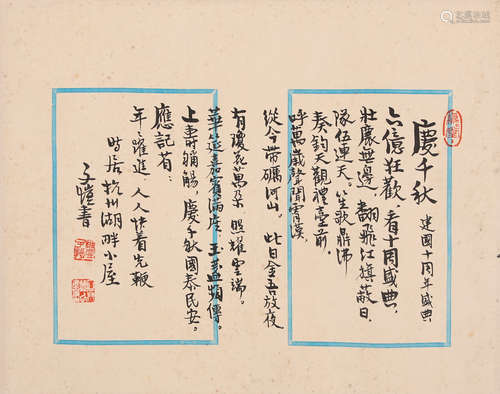 慶千秋 建國十周年盛典
六億狂歡，看十周盛典，
壯嚴無邊，翻飛紅旗蔽日，
隊伍連天。笙歌鼎沸
奏鈞天觀禮臺前，
呼萬歲聲聞霄漢
從今帶礪河山 此日金吾放夜
有瓊花萬朵 照耀雲端。
華筵嘉賓滿座 玉盞頻傳。
上壽稱觴，慶千秋國泰民安。
應記省：
年年躍進，人人快着先鞭
時居杭州湖畔小屋
子愷書